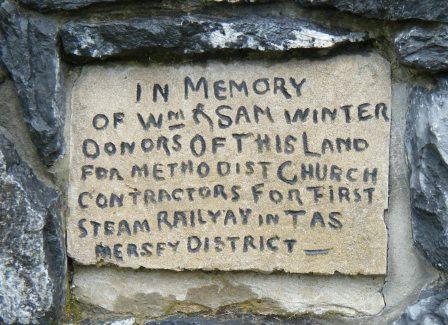 IN MEMORY
OF Wm & SAM WINTER
DONORS OF THIS LAND
FOR METHODIST CHURCH
CONTRACTORS FOR FIRST
STEAM RAILYAY IN TAS
MERSEY DISTRICT —